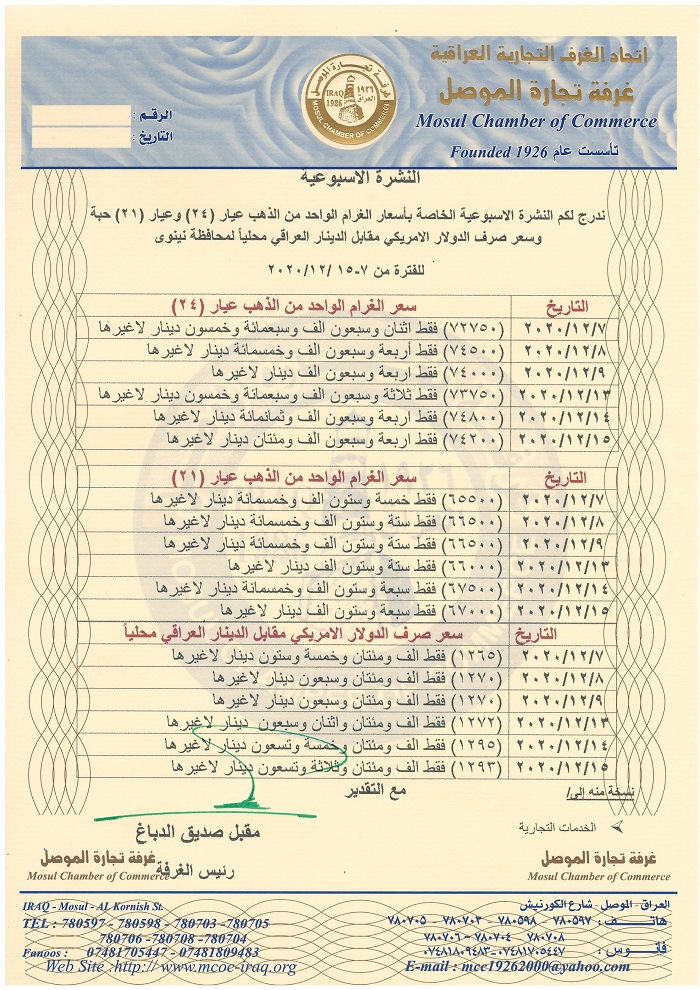 اتحاد الغرف التجارية العراقية
غرفة تجارة الموصل
Mosul Chamber of Commerce
تأسست عام Founded 1926
غرفة تجارة الموصل
IRAQ ١٩٢٦
1926 العراق
MOSUL CHAMBER OF COMMERCE
الرقم :
التاريخ :
النشرة الاسبوعية
ندرج لكم النشرة الاسبوعية الخاصة بأسعار الغرام الواحد من الذهب عيار (٢٤) وعيار (٢١) حبة
وسعر صرف الدولار الامريكي مقابل الدينار العراقي محلياً لمحافظة نينوى
للفترة من ٧-١٥ /٢٠٢٠/١٢
التاريخ سعر الغرام الواحد من الذهب عيار (٢٤)
٢٠٢٠/١٢/٧ (٧٢٧٥٠) فقط اثنان وسبعون الف وسبعمائة وخمسون دينار لاغيرها
٢٠٢٠/١٢/٨ (٧٤٥٠٠) فقط أربعة وسبعون الف وخمسمائة دينار لاغيرها
٢٠٢٠/١٢/٩ (٧٤٠٠٠) فقط اربعة وسبعون الف دينار لاغيرها
٢٠٢٠/١٢/١٣ (٧٣٧٥٠) فقط ثلاثة وسبعون الف وسبعمائة وخمسون دينار لاغيرها
٢٠٢٠/١٢/١٤ (٧٤٨٠٠) فقط اربعة وسبعون الف وثمانمائة دينار لاغيرها
٢٠٢٠/١٢/١٥ (٧٤٢٠٠) فقط اربعة وسبعون الف ومئتان دينار لاغيرها
التاريخ سعر الغرام الواحد من الذهب عيار (٢١)
٢٠٢٠/١٢/٧ (٦٥٥٠٠) فقط خمسة وستون الف وخمسمائة دينار لاغيرها
٢٠٢٠/١٢/٨ (٦٦٥٠٠) فقط ستة وستون الف وخمسمائة دينار لاغيرها
٢٠٢٠/١٢/٩ (٦٦٥٠٠) فقط ستة وستون الف وخمسمائة دينار لاغيرها
٢٠٢٠/١٢/١٣ (٦٦٠٠٠) فقط ستة وستون الف دينار لاغيرها
٢٠٢٠/١٢/١٤ (٦٧٥٠٠) فقط سبعة وستون الف وخمسمائة دينار لاغيرها
٢٠٢٠/١٢/١٥ (٦٧٠٠٠) فقط سبعة وستون الف دينار لاغيرها
التاريخ سعر صرف الدولار الامريكي مقابل الدينار العراقي محلياً
٢٠٢٠/١٢/٧ (١٢٦٥) فقط الف ومئتان وخمسة وستون دينار لاغيرها
٢٠٢٠/١٢/٨ (١٢٧٠) فقط الف ومئتان وسبعون دينار لاغيرها
٢٠٢٠/١٢/٩ (١٢٧٠) فقط الف ومئتان وسبعون دينار لاغيرها
٢٠٢٠/١٢/١٣ (١٢٧٢) فقط الف ومئتان واثنان وسبعون دينار لاغيرها
٢٠٢٠/١٢/١٤ (١٢٩٥) فقط الف ومئتان وخمسة وتسعون دينار لاغيرها
٢٠٢٠/١٢/١٥ (١٢٩٣) فقط الف ومئتان وثلاثة وتسعون دينار لاغيرها
مع التقدير
نسخة منه إلى/
الخدمات التجارية
مقبل صديق الدباغ
رئيس الغرفة
غرفة تجارة الموصل
Mosul Chamber of Commerce
غرفة تجارة الموصل
Mosul Chamber of Commerce
العراق - الموصل - شارع الكورنيش
هاتف : ٧٨٠٥٩٧ - ٧٨٠٥٩٨ - ٧٨٠٧٠٣ - ٧٨٠٧٠٥
٧٨٠٧٠٨ - ٧٨٠٧٠٤ - ٧٨٠٧٠٦
فانوس : ٠٧٤٨١٧٠٥٤٤٧-٠٧٤٨١٨٠٩٤٨٣
E-mail : mcc19262000@yahoo.com
IRAQ - Mosul - AL Kornish St.
TEL : 780597 - 780598 - 780703 -780705
780706 -780708 -780704
Fanoos : 07481705447 - 07481809483
Web Site :http:// www.mcoe-iraq.org